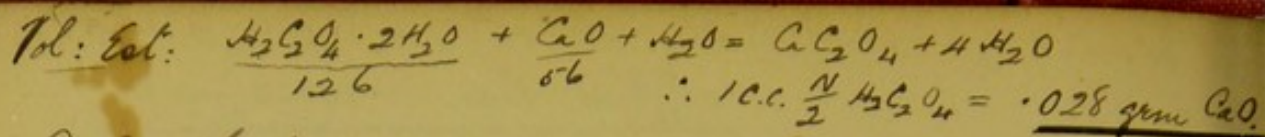 Vol: Est: H₂C₂O₄·2H₂O + CaO + H₂O = CaC₂O₄ + 4H₂O
126 56
∴ 1 C.C. N/2 H₂C₂O₄ = ·028 grm CaO.